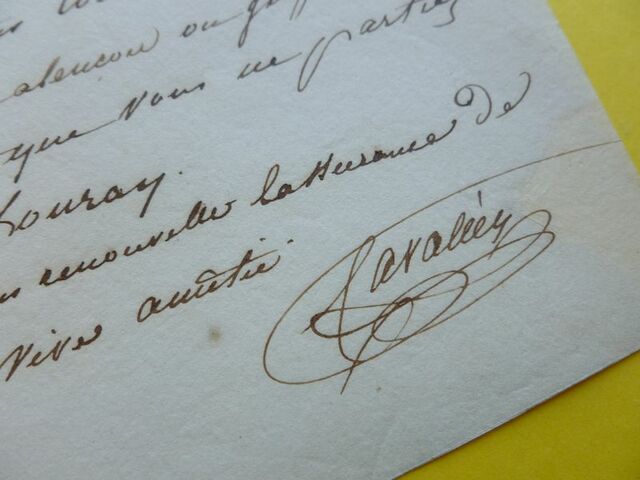 alencon ou
que vous ne partiez
Souray.
renouvelle lassurance de
vive amitié.
Cavalier